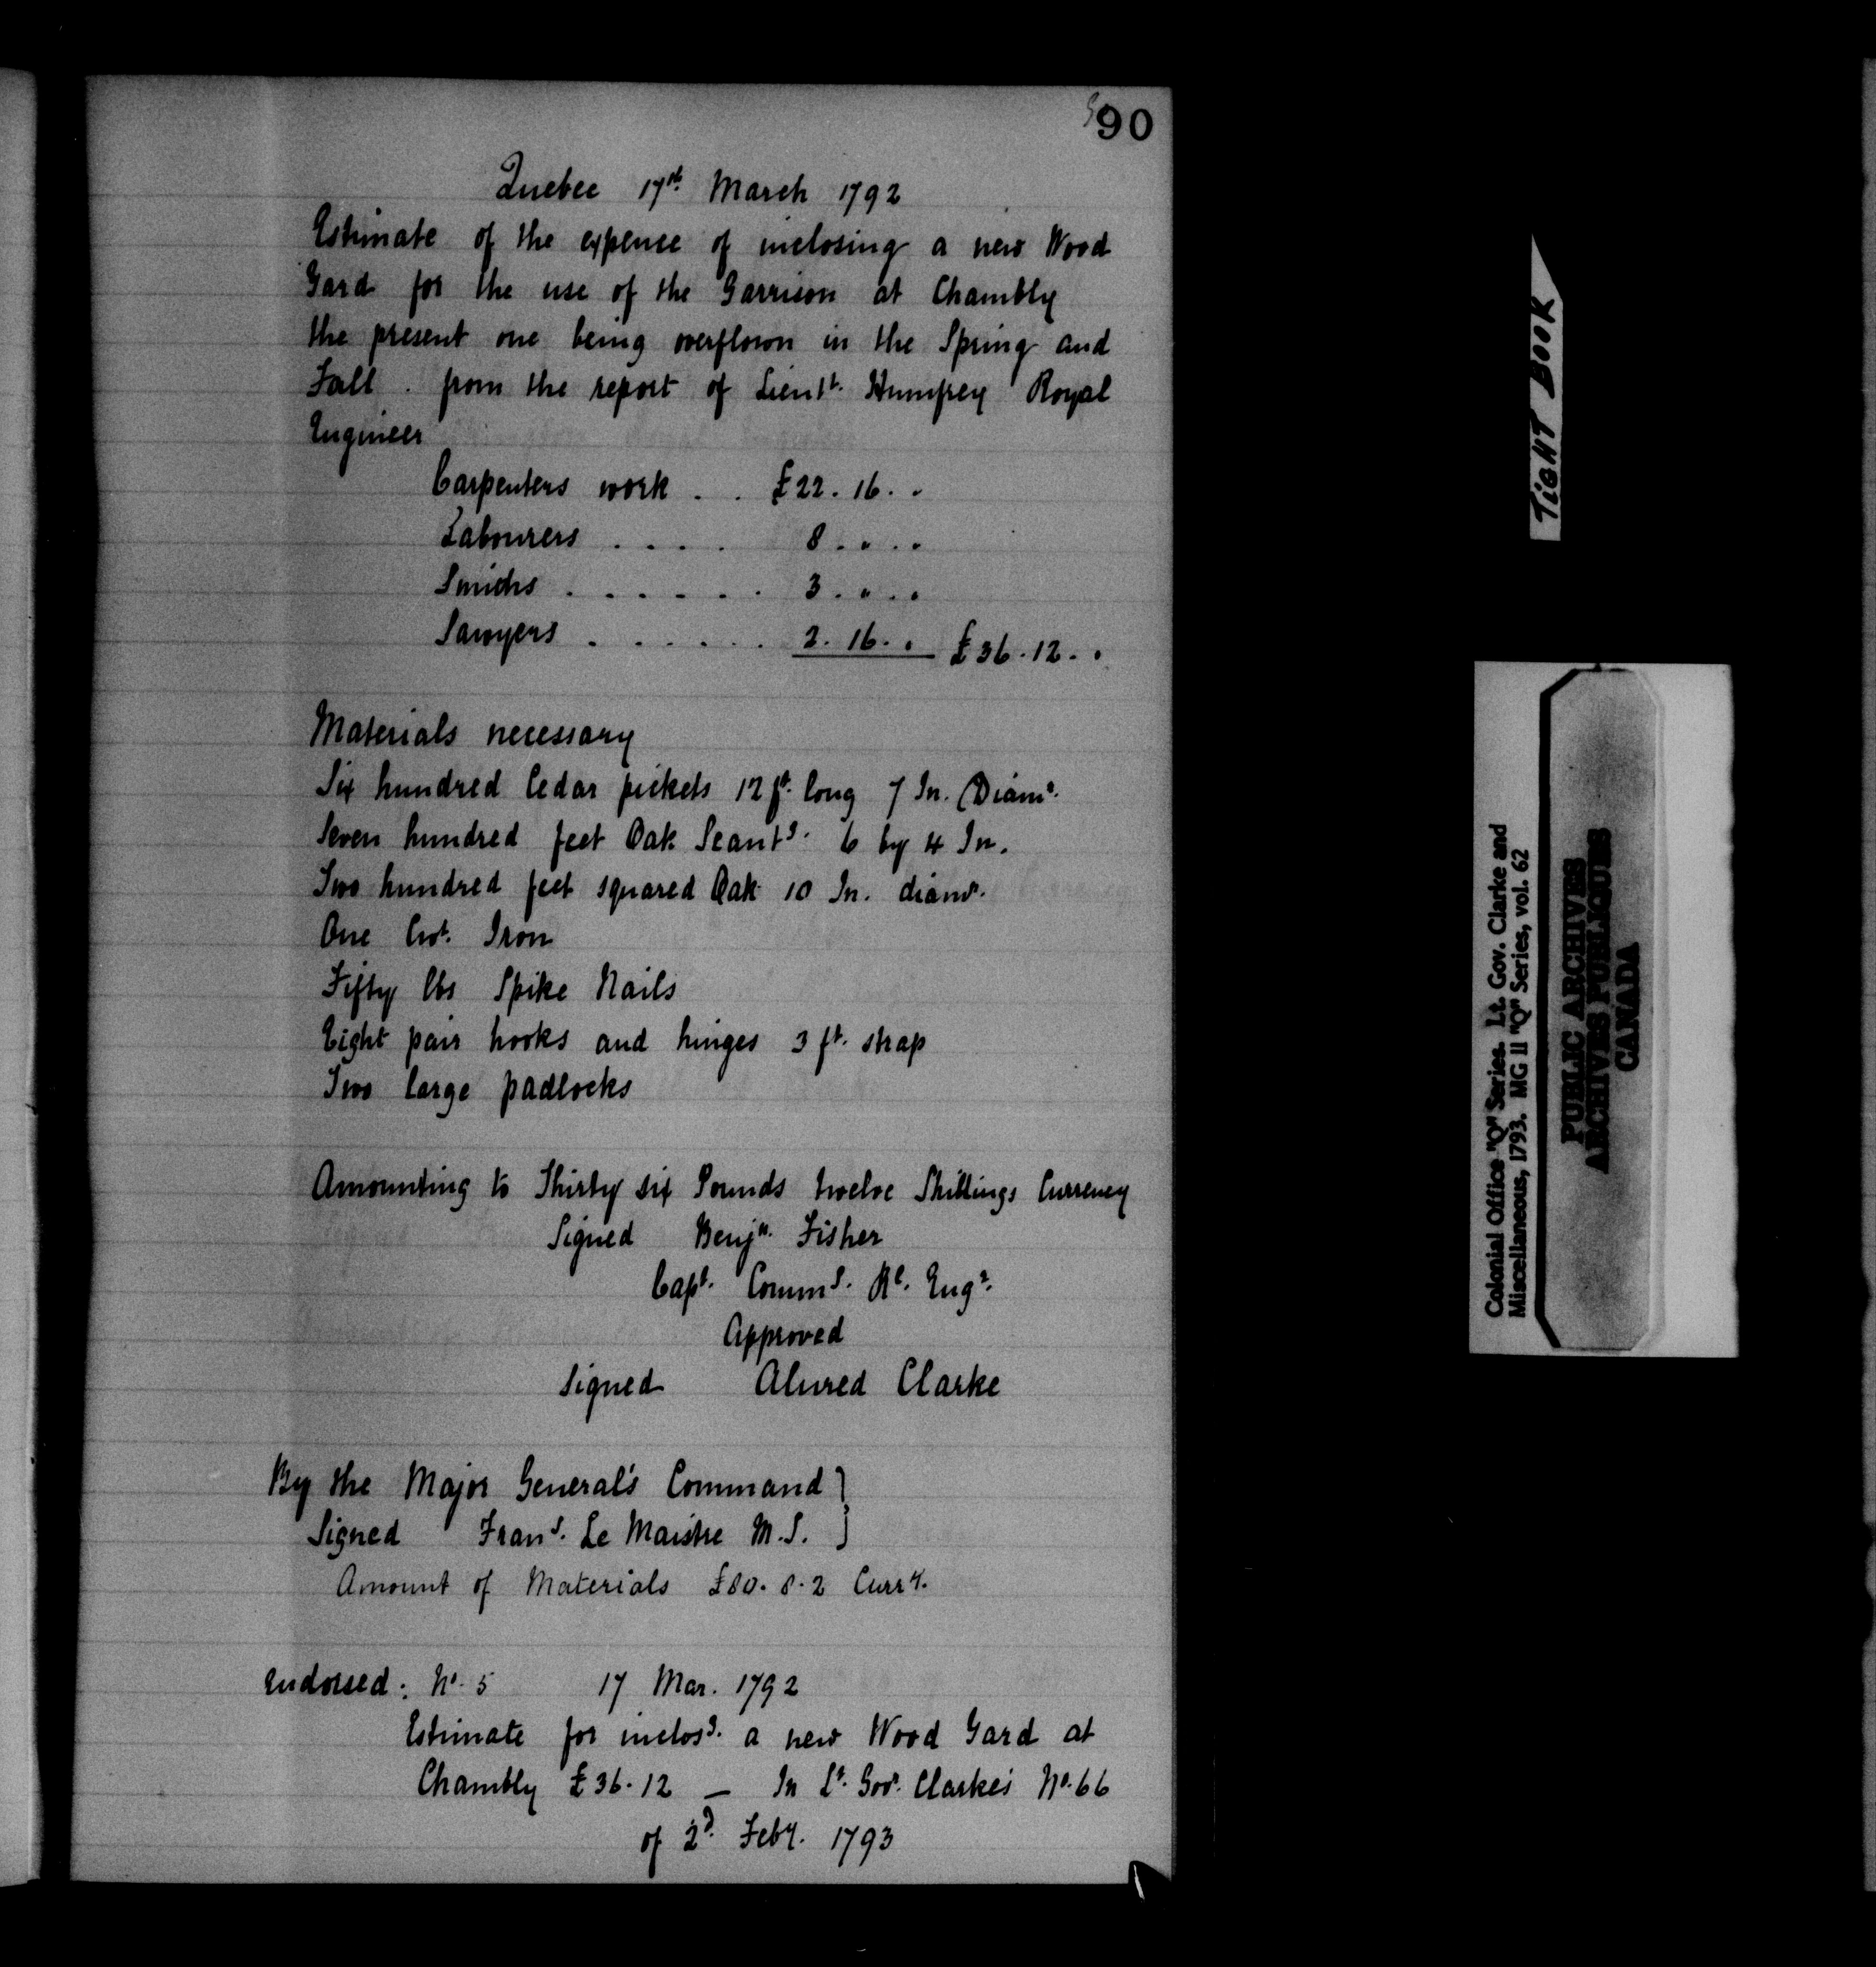 90
Quebec 17th. March 1792
Estimate of the expence of inclosing a new Wood
Yard for the use of the Garrison at Chambly
the present one being overflown in the Spring and
Fall . from the report of Lieutt. Humfrey Royal
Engineer
Carpenters work . . £22. 16. .
Labourers . . . . 8 . . . .
Smiths . . . . . . 3 . . . .
Sawyers . . . . . . 2. 16. . £36.12. .
Materials necessary
Six hundred Cedar pickets 12 ft. long 7 In. Diamr.
Seven hundred feet Oak Scantg. 6 by 4 In.
Two hundred feet squared Oak 10 In. diamr.
One Cwt. Iron
Fifty lbs Spike Nails
Eight pair hooks and hinges 3 ft. strap
Two large padlocks
Amounting to Thirty six Pounds twelve Shillings Currency
Signed Benjn. Fisher
Capt. Commd. Rl. Engr.
Approved
Signed Alured Clarke
By the Major General's Command }
Signed Frans. Le Maistre M.S. }
Amount of Materials £80. 8. 2 Curry.
Endorsed: No. 5 17 Mar. 1792
Estimate for inclosg. a new Wood Yard at
Chambly £36.12 — In Lt. Govr. Clarke's No. 66
of 2d. Feby. 1793
TIGHT BOOK
Colonial Office "Q" Series. Lt. Gov. Clarke and
Miscellaneous, 1793. MG 11 "Q" Series, vol. 62
PUBLIC ARCHIVES
ARCHIVES PUBLIQUES
CANADA